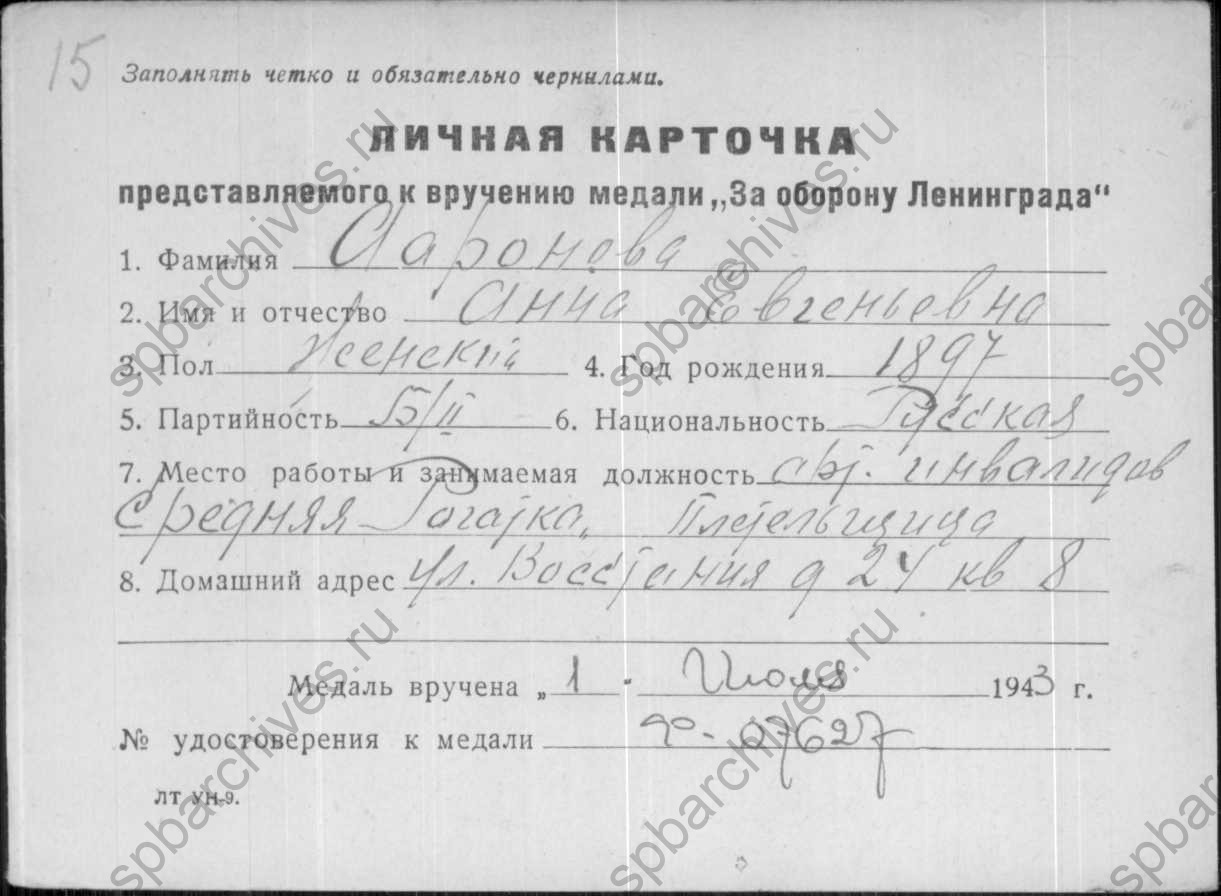 15
Заполнять четко и обязательно чернилами.
ЛИЧНАЯ КАРТОЧКА
представляемого к вручению медали „За оборону Ленинграда“
1. Фамилия Ааронова
2. Имя и отчество Анна Евгеньевна
3. Пол Женский 4. Год рождения 1897
5. Партийность Б/П 6. Национальность Русская
7. Место работы и занимаемая должность арт. инвалидов
Средняя Рогатка, Плетельщица
8. Домашний адрес ул. Восстания д 24 кв 8
Медаль вручена „ 1 " Июля 1943 г.
№ удостоверения к медали 07627
ЛТ УН-9.
spbarchives.ru
spbarchives.ru
spbarchives.ru
spbarchives.ru